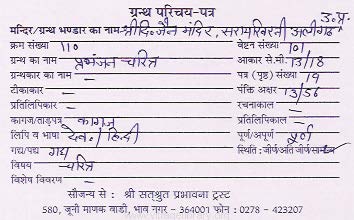 ग्रन्थ परिचय-पत्र
उ.प्र.
मन्दिर/ग्रन्थ भण्डार का नाम श्री दि. जैन मंदिर, सरायखिरनी अलीगढ़
क्रम संख्या 110 वेष्टन संख्या 101
ग्रन्थ का नाम प्रभंजन चरित्र आकार से.मी. 13/18
ग्रन्थकार का नाम – पत्र (पृष्ठ) संख्या 19
टीकाकार – पंक्ति अक्षर 13/56
प्रतिलिपिकार – रचनाकाल –
कागज/ताड़पत्र कागज प्रतिलिपिकाल –
लिपि व भाषा देव./हिन्दी पूर्ण/अपूर्ण पूर्ण
गद्य/पद्य गद्य स्थिति : जीर्ण/अति जीर्ण/सामान्य
विषय चरित्र
विशेष विवरण –
सौजन्य से : श्री सतश्रुत प्रभावना ट्रस्ट
580, जूनी माणक वाडी, भाव नगर – 364001 फोन : 0278 – 423207